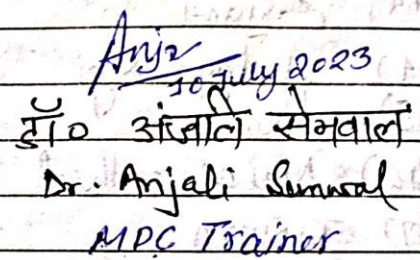 Anja
10 July 2023
डॉ० अंजलि सेमवाल
Dr. Anjali Semwal
MPC Trainer